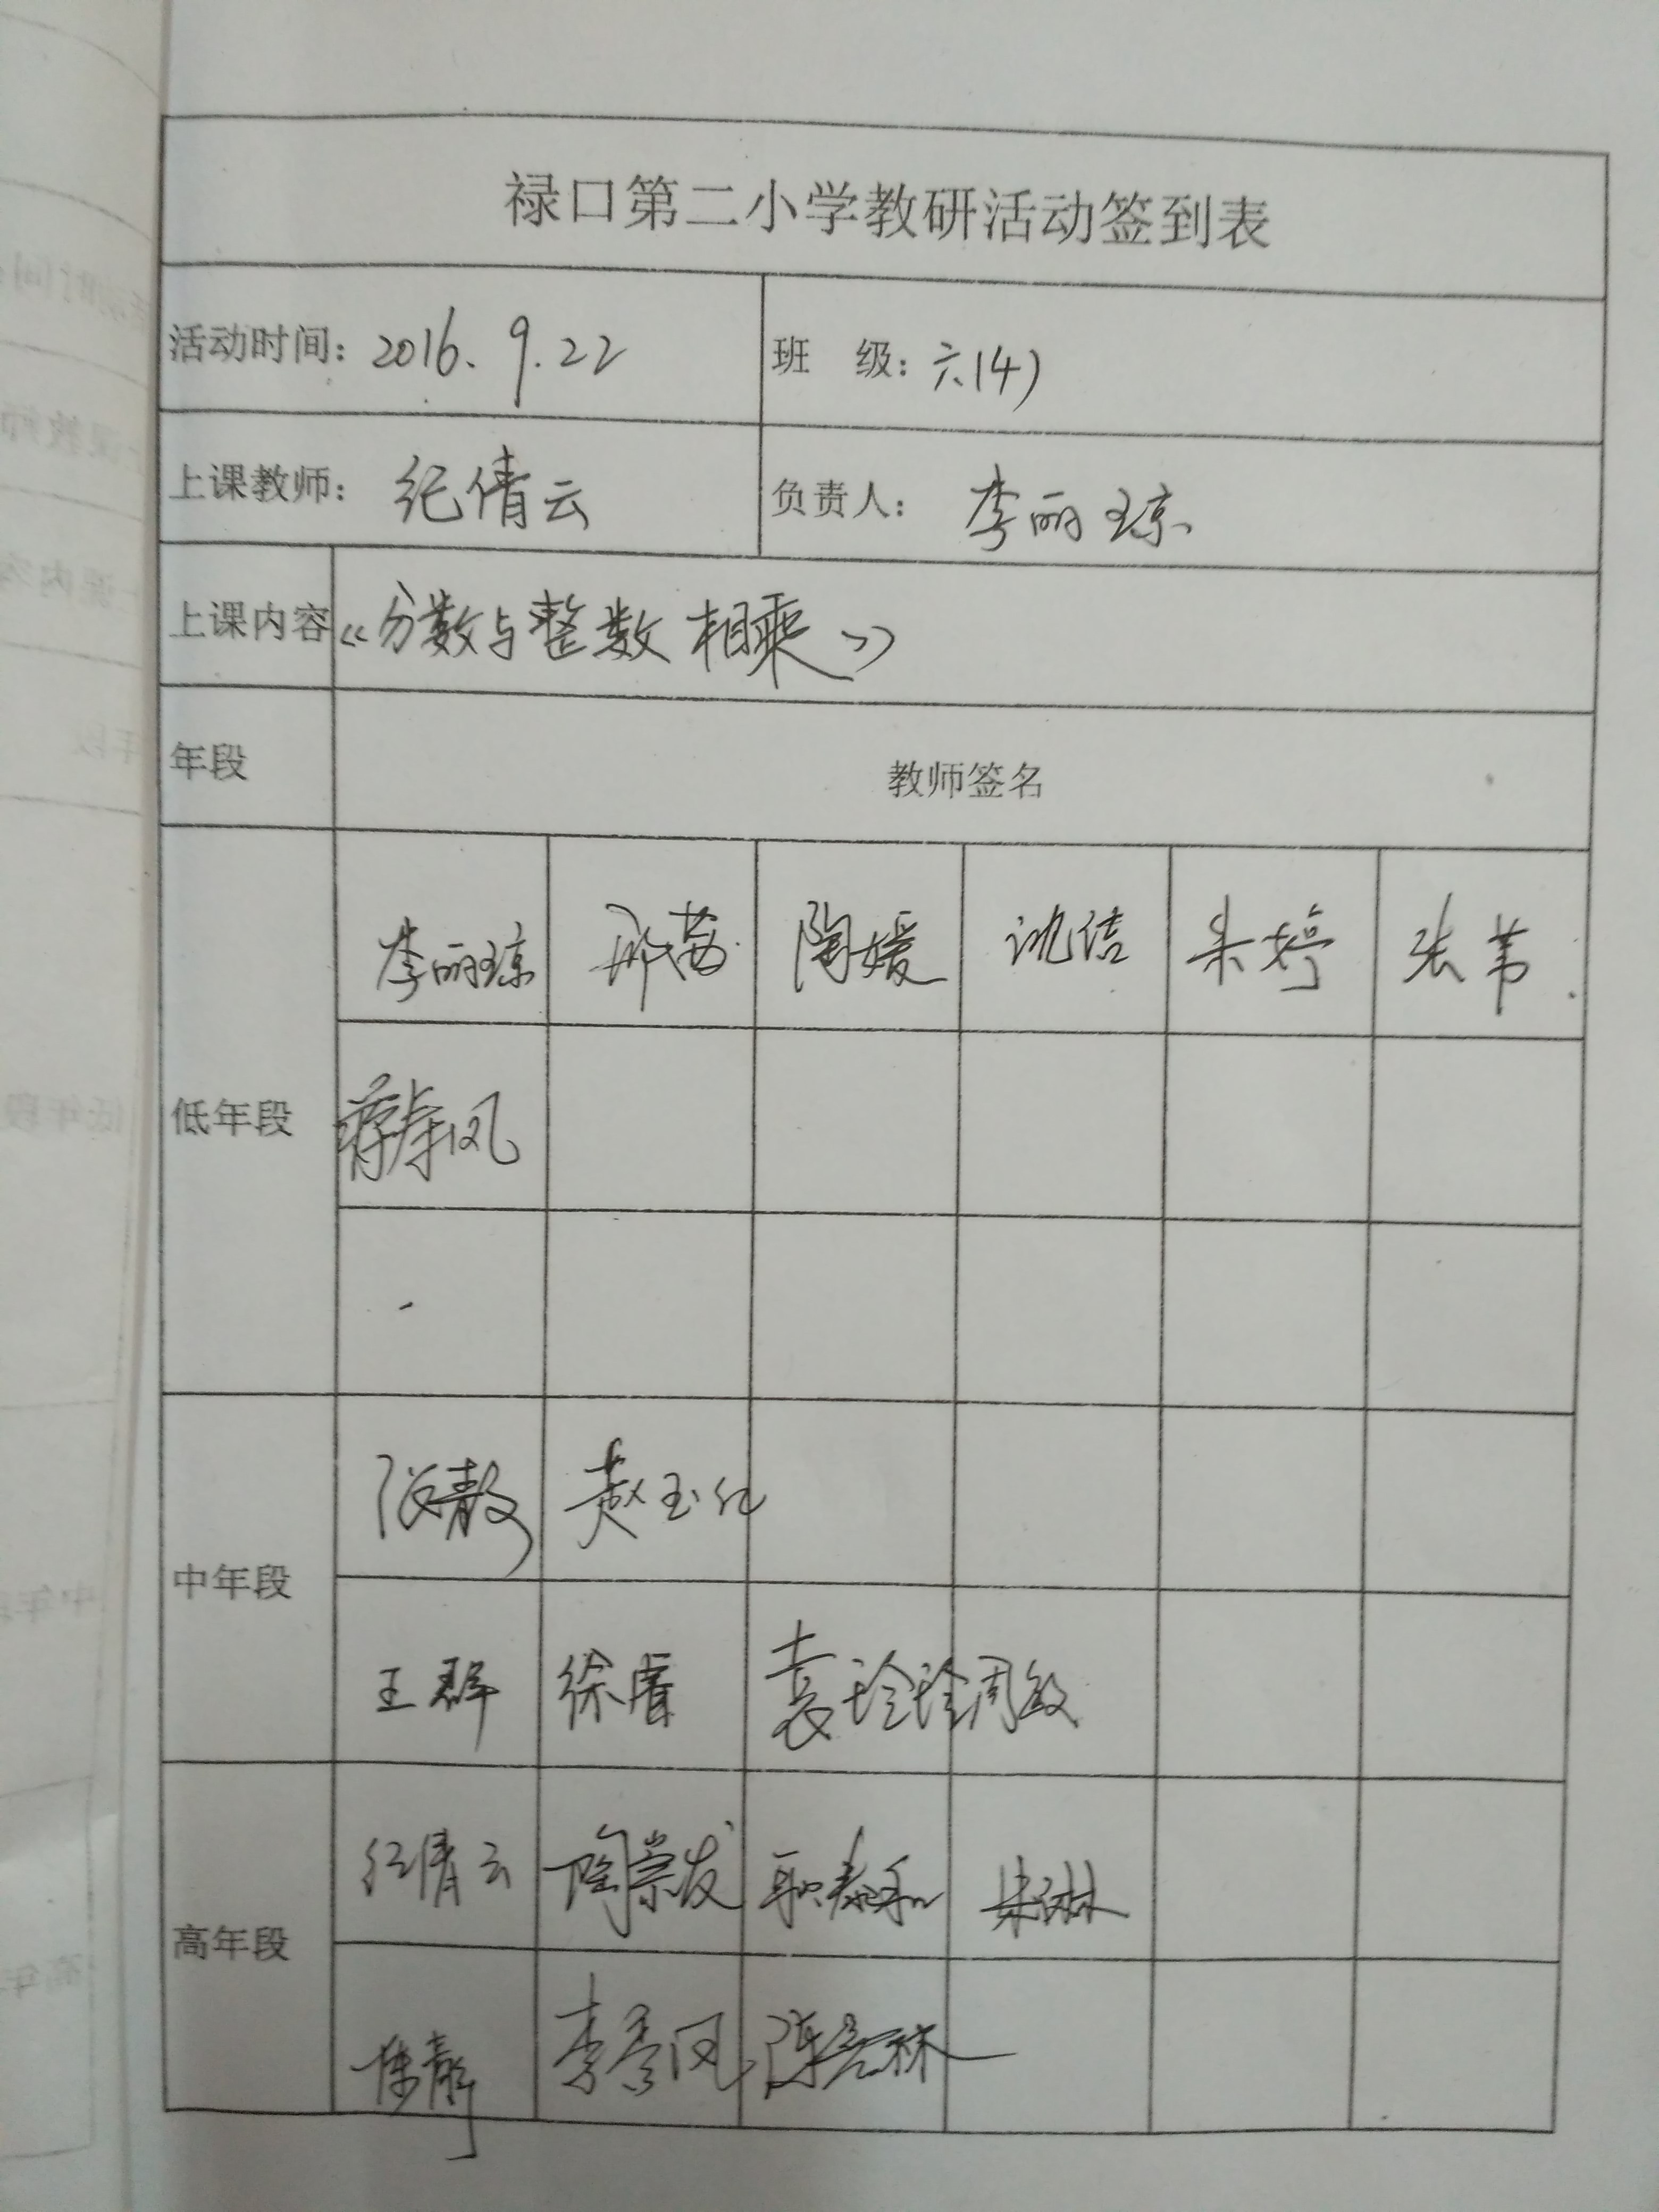 禄口第二小学教研活动签到表
活动时间：2016.9.22 班 级：六(4)
上课教师：纪倩云 负责人：李丽琼
上课内容《分数与整数相乘》
年段 教师签名
李丽琼 陶媛 沈洁 朱婷 张苇
低年段
赵玉红
中年段
王群 徐睿 袁玲玲 周敏
纪倩云 陶崇发 朱琳
高年段
陈静 李秀凤